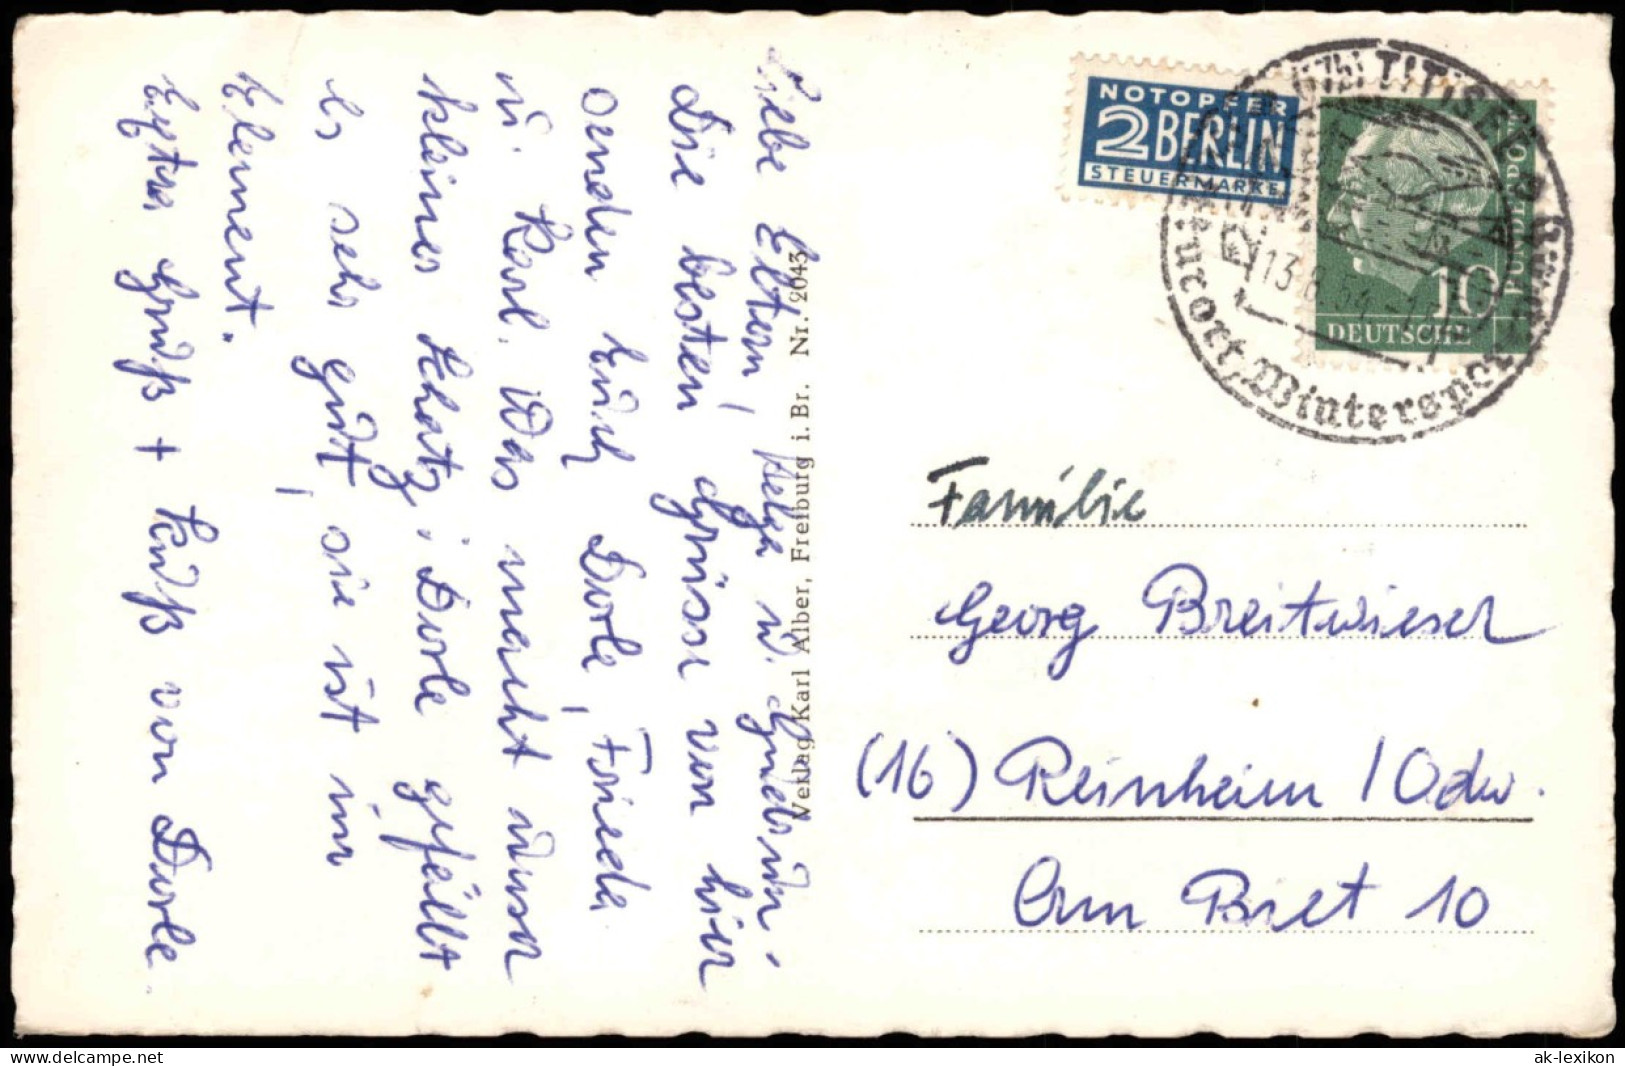 Liebe Eltern, Helga u. Gudrun!
Die besten Grüsse von hier
senden Euch Dorle, Frieda
u. Karl. Was macht unser
kleiner Schatz; Dorle gefällt
es sehr gut, sie ist im
Element.
Extra Gruß + Kuß von Dorle.
Verlag Karl Alber, Freiburg i. Br. Nr. 2043
NOTOPFER
2 BERLIN
STEUERMARKE
(17b) TITISEE
13.8.54.-1
Kurort, Wintersport
BUNDESPOST
10
DEUTSCHE
Familie
Georg Breitwieser
(16) Reinheim / Odw.
Am Biet 10
delcampe.net
ak-lexikon